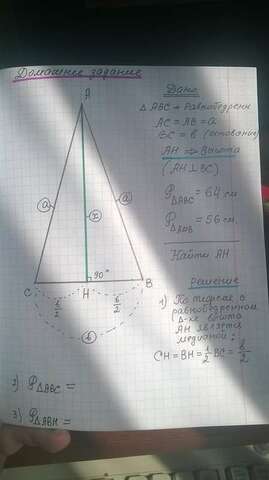 Домашнее задание
Дано:
Δ ABC → Равнобедрен
AC = AB = a
BC = b (основание)
AH ⇒ Высота
(AH⊥BC)
P ΔABC = 64 см
P = 56 см.
Найти AH
Решение
1) По теореме о
равнобедренном
Δ-ке высота
AH является
медианой:
CH = BH = 1/2 BC = b/2
A
a
x
a
90°
C
H
B
b/2
b/2
b
2) P ΔABC =
3) P ΔABH =